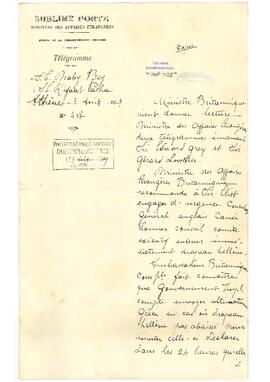 SUBLIME PORTE
MINISTÈRE DES AFFAIRES ÉTRANGÈRES
Télégramme
S.E. Naby Bey
à S. Rifaat Pacha
Athènes
N° 437
Copie
Ministre Britannique
vient donner lecture
Ministre des Affaires Etrangères
deux télégrammes émanant
Sir Edward Grey et Sir
Gérard Lowther.
Ministre des Affaires
Etrangères Britannique
recommande à
engager d'urgence Consul
Général anglais Canée
donner conseil comité
exécutif enlever immé-
diatement drapeau hellène.
Ambassadeur Britannique
Consple fait connaître
que Gouvernement Impl
compte envoyer ultimatum
Grèce en cas où drapeau
hellène pas abaissé pour
celle-ci déclarer
dans les 24 heures qu'elle